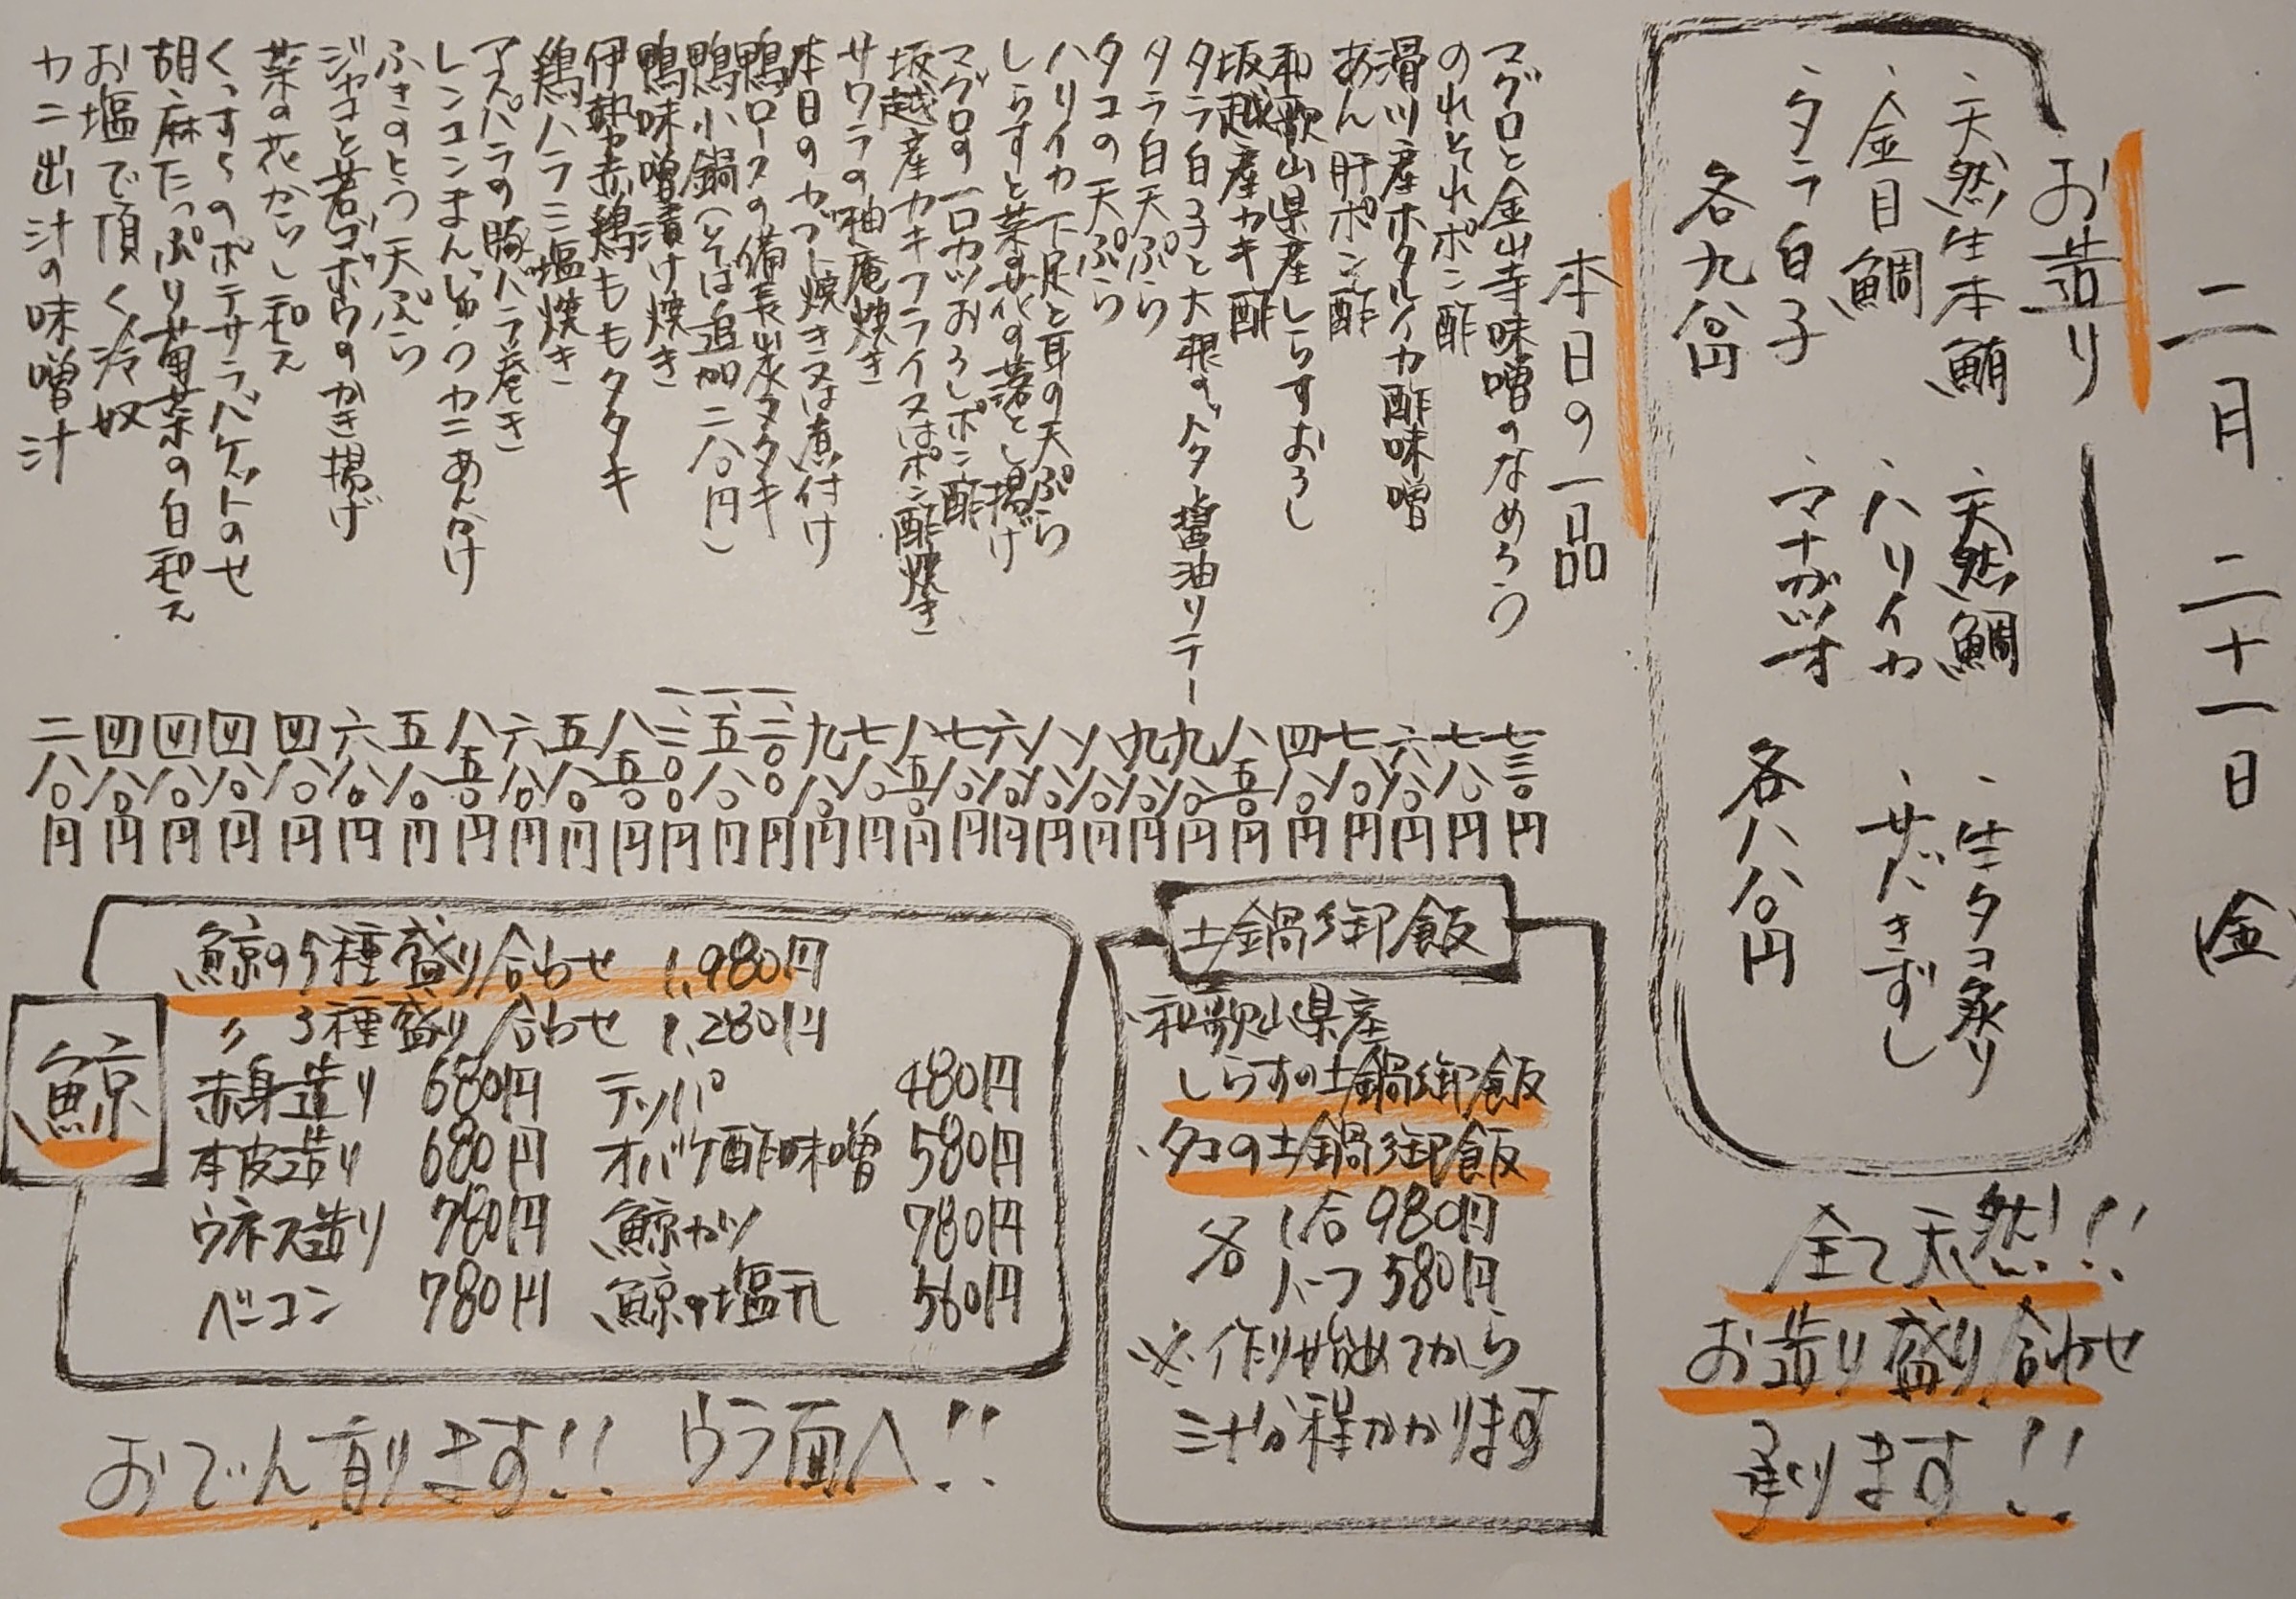 二月二十一日(金)
お造り
・天然生本鮪 ・天然鯛 ・生タコ炙り
・金目鯛 ・ハリイカ ・サバきずし
・タラ白子 ・マナガツオ
各九八〇円 各八八〇円
全て天然!!
お造り盛り合わせ
承ります!!
本日の一品
マグロと金山寺味噌のなめろう 七三〇円
のれそれポン酢 七八〇円
滑川産ホタルイカ酢味噌 六八〇円
あん肝ポン酢 七八〇円
和歌山県産しらすおろし 四八〇円
坂越産カキ酢 八五〇円
タラ白子と大根のバター醤油ソテー 九八〇円
タラ白天ぷら 九八〇円
タコの天ぷら 八八〇円
ハリイカ下足と耳の天ぷら 八八〇円
しらすと菜の花の落とし揚げ 六八〇円
マグロの一口カツおろしポン酢 七八〇円
坂越産カキフライ又はポン酢焼き 八五〇円
サワラの柚庵焼き 七八〇円
本日のカブト焼き又は煮付け 九八〇円
鴨ロースの備長炭タタキ 一、二〇〇円
鴨小鍋(そば追加二八〇円) 一、五八〇円
鴨味噌漬け焼き 一、三〇〇円
伊勢赤鶏ももタタキ 八五〇円
鶏ハラミ塩焼き 五八〇円
アスパラの豚バラ巻き 六八〇円
レンコンまんじゅうカニあんかけ 八五〇円
ふきのとう天ぷら 五八〇円
ジャコと若ゴボウのかき揚げ 六八〇円
菜の花からし和え 四八〇円
くっすんのポテサラバケットのせ 四八〇円
胡麻たっぷり菊菜の白和え 四八〇円
お塩で頂く冷奴 四八〇円
カニ出汁の味噌汁 二八〇円
土鍋御飯
・和歌山県産
しらすの土鍋御飯
・タコの土鍋御飯
各 1合 980円
ハーフ 580円
※作り始めてから
三十分程かかります
鯨
鯨の5種盛り合わせ 1,980円
〃 3種盛り合わせ 1,280円
赤身造り 680円 テッパ 480円
本皮造り 680円 オバケ酢味噌 580円
ウネス造り 780円 鯨カツ 780円
ベーコン 780円 鯨の塩元 560円
おでん有ります!! ウラ面へ!!